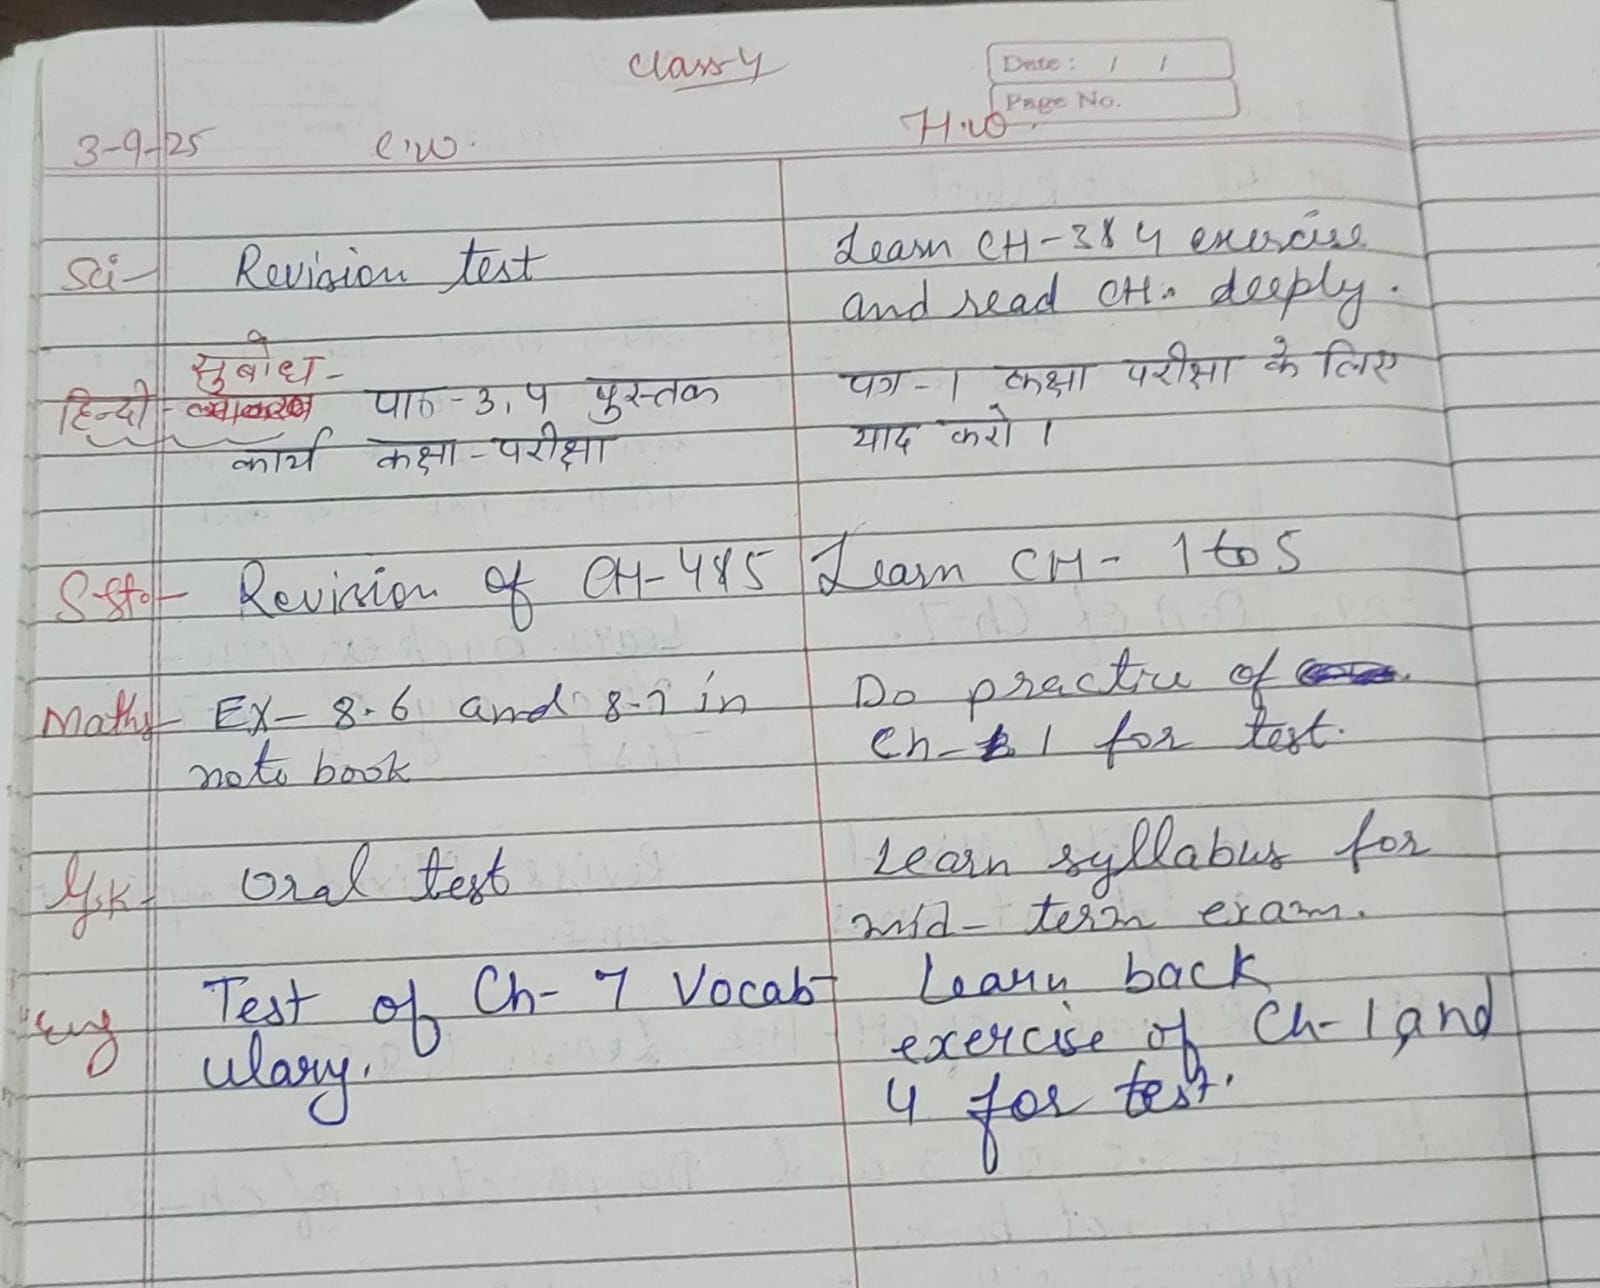 Class-4
Date: / /
Page No.
3-9-25 C.W. H.W.
Sci- Revision test Learn CH-3&4 exercise
and read CH. deeply.
सुबोध-
हिन्दी- पाठ-3,4 पुस्तक पत्र-1 कक्षा परीक्षा के लिए
कार्य कक्षा-परीक्षा याद करो।
S.St- Revision of CH-4&5 Learn CH- 1 to 5
Maths- EX- 8.6 and 8.7 in Do practice of
note book Ch-1 for test.
G.K- Oral test Learn syllabus for
mid- term exam.
Eng Test of Ch- 7 Vocab- Learn back
ulary. exercise of Ch-1 and
4 for test.